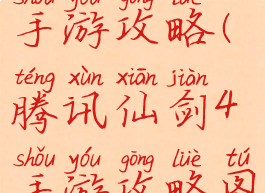 shǒu yóu gōng lüè
手游攻略(
téng xùn xiān jiàn
腾讯仙剑4
shǒu yóu gōng lüè tú
手游攻略图